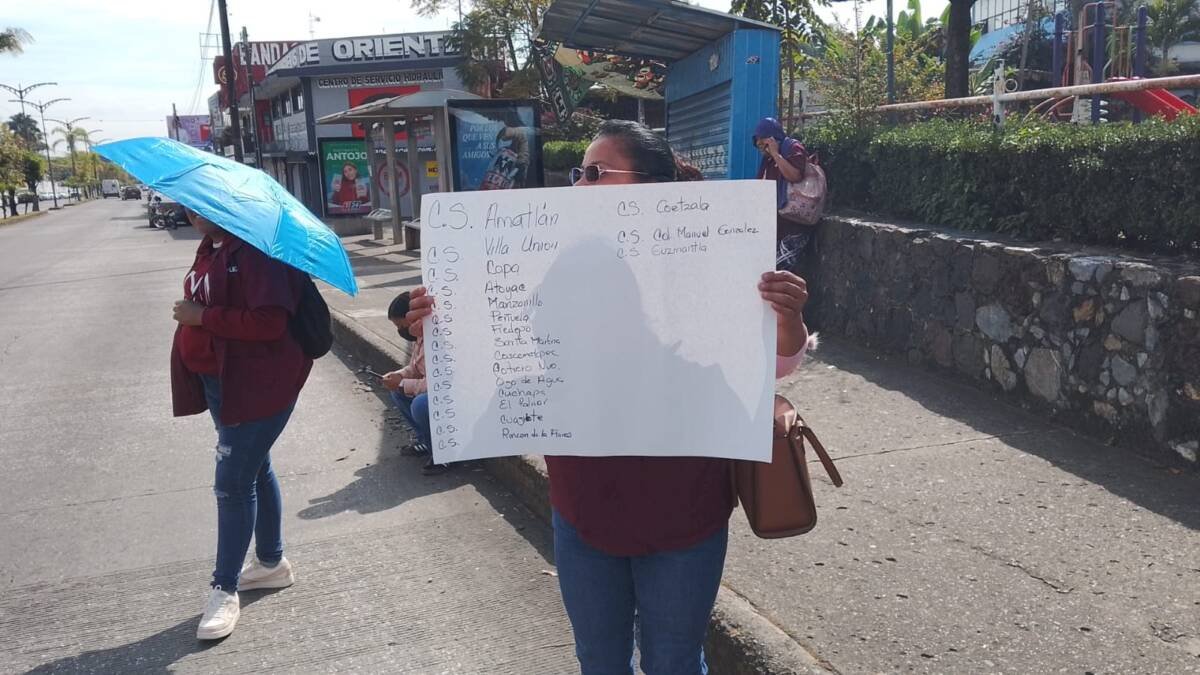 BANDAS
DE ORIENTE
CENTRO DE SERVICIO HIDRAULI
ANTOJO
POR LO
QUE VEN
A SUS
AMIGOS
C.S. Amatlán
C.S. Villa Union
C.S. Capa
C.S. Atoyac
C.S. Manzanillo
C.S. Peñuela
C.S. Fredepo
C.S. Santa Martina
C.S. Coscomatepec
C.S. Potrero Nvo.
C.S. Ojo de Agua
C.S. Cuchapa
C.S. El Palmar
C.S. Cuajlote
C.S. Rincon de la Flores
C.S. Coetzala
C.S. Col. Manuel Gonzalez
C.S. Guzmantla